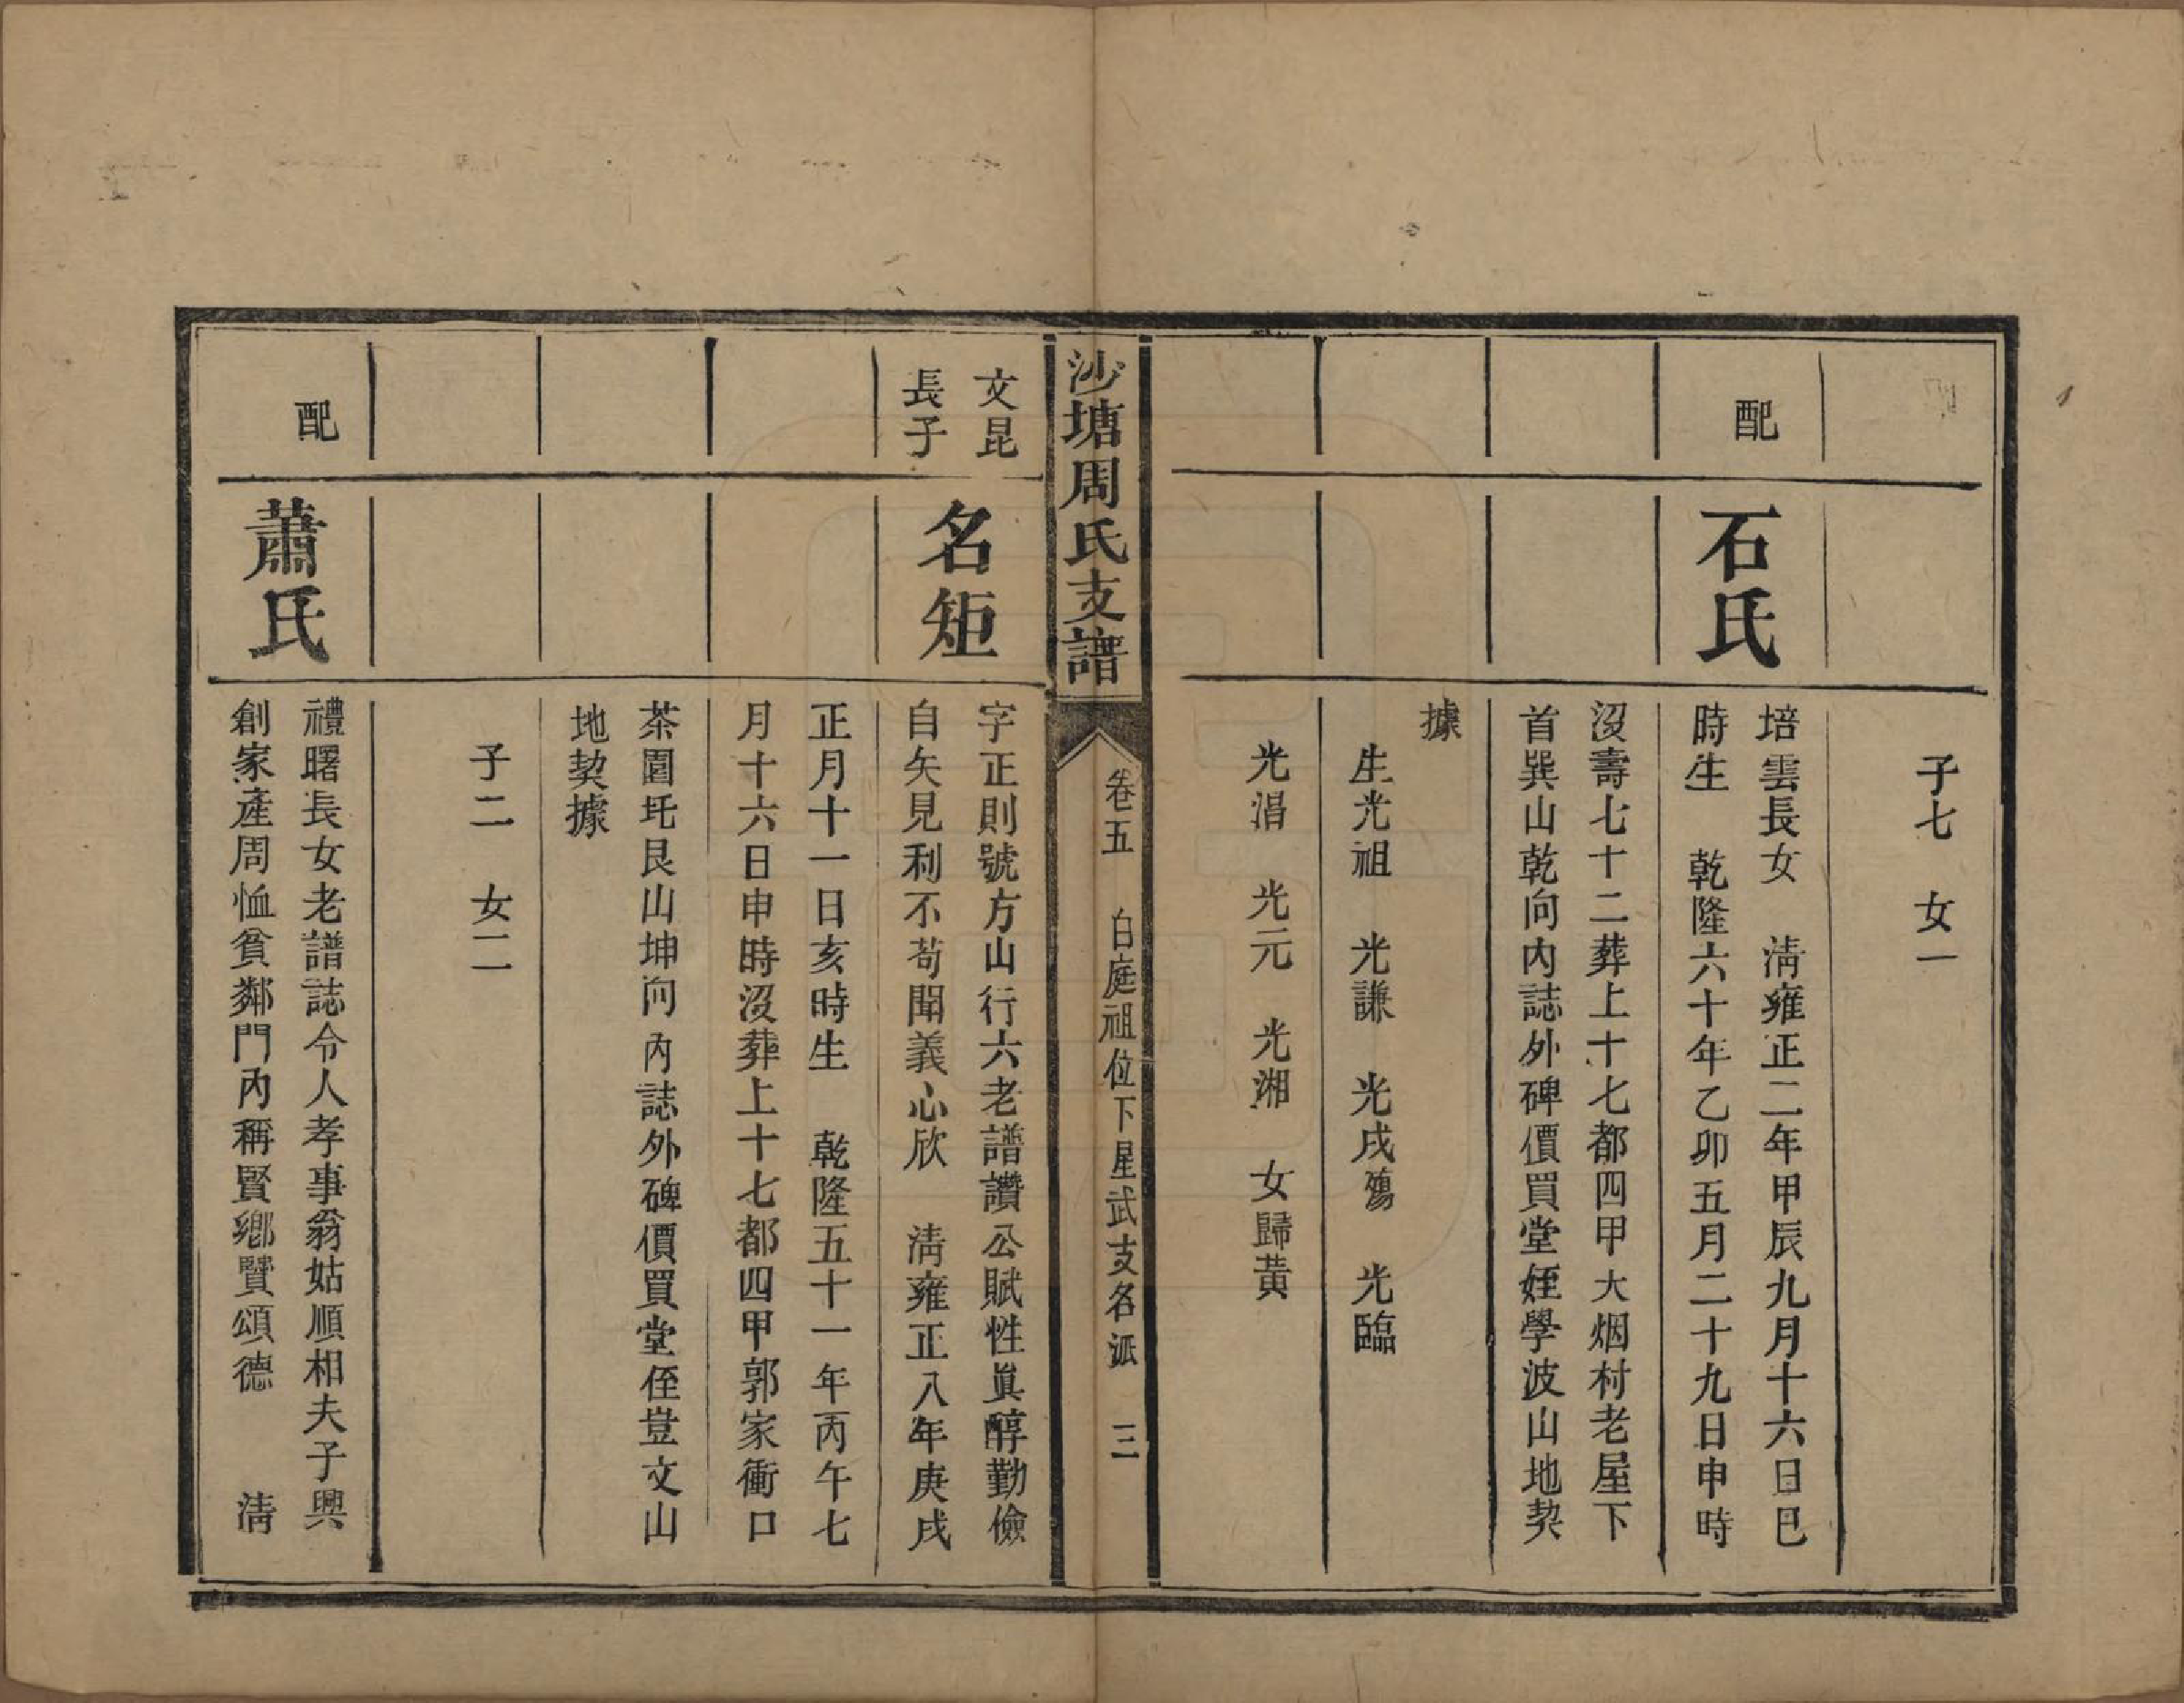 子七　女一
配
石氏
培雲長女　淸雍正二年甲辰九月十六日巳
時生　乾隆六十年乙卯五月二十九日申時
沒壽七十二葬上十七都四甲大烟村老屋下
首巽山乾向內誌外碑價買堂姪學波山地契
據
生光祖　光謙　光戌殤　光臨
光淐　光元　光湘　女歸黃
沙塘周氏支譜
卷五　白庭祖位下星武支名派　三
文昆
長子
名矩
字正則號方山行六老譜讚公賦性眞醇勤儉
自矢見利不苟聞義心欣　淸雍正八年庚戌
正月十一日亥時生　乾隆五十一年丙午七
月十六日申時沒葬上十七都四甲郭家衝口
茶園圫艮山坤向內誌外碑價買堂侄豈文山
地契據
子二　女二
配
蕭氏
禮曙長女老譜誌令人孝事翁姑順相夫子興
創家產周恤貧鄰門內稱賢鄕贊頌德　淸